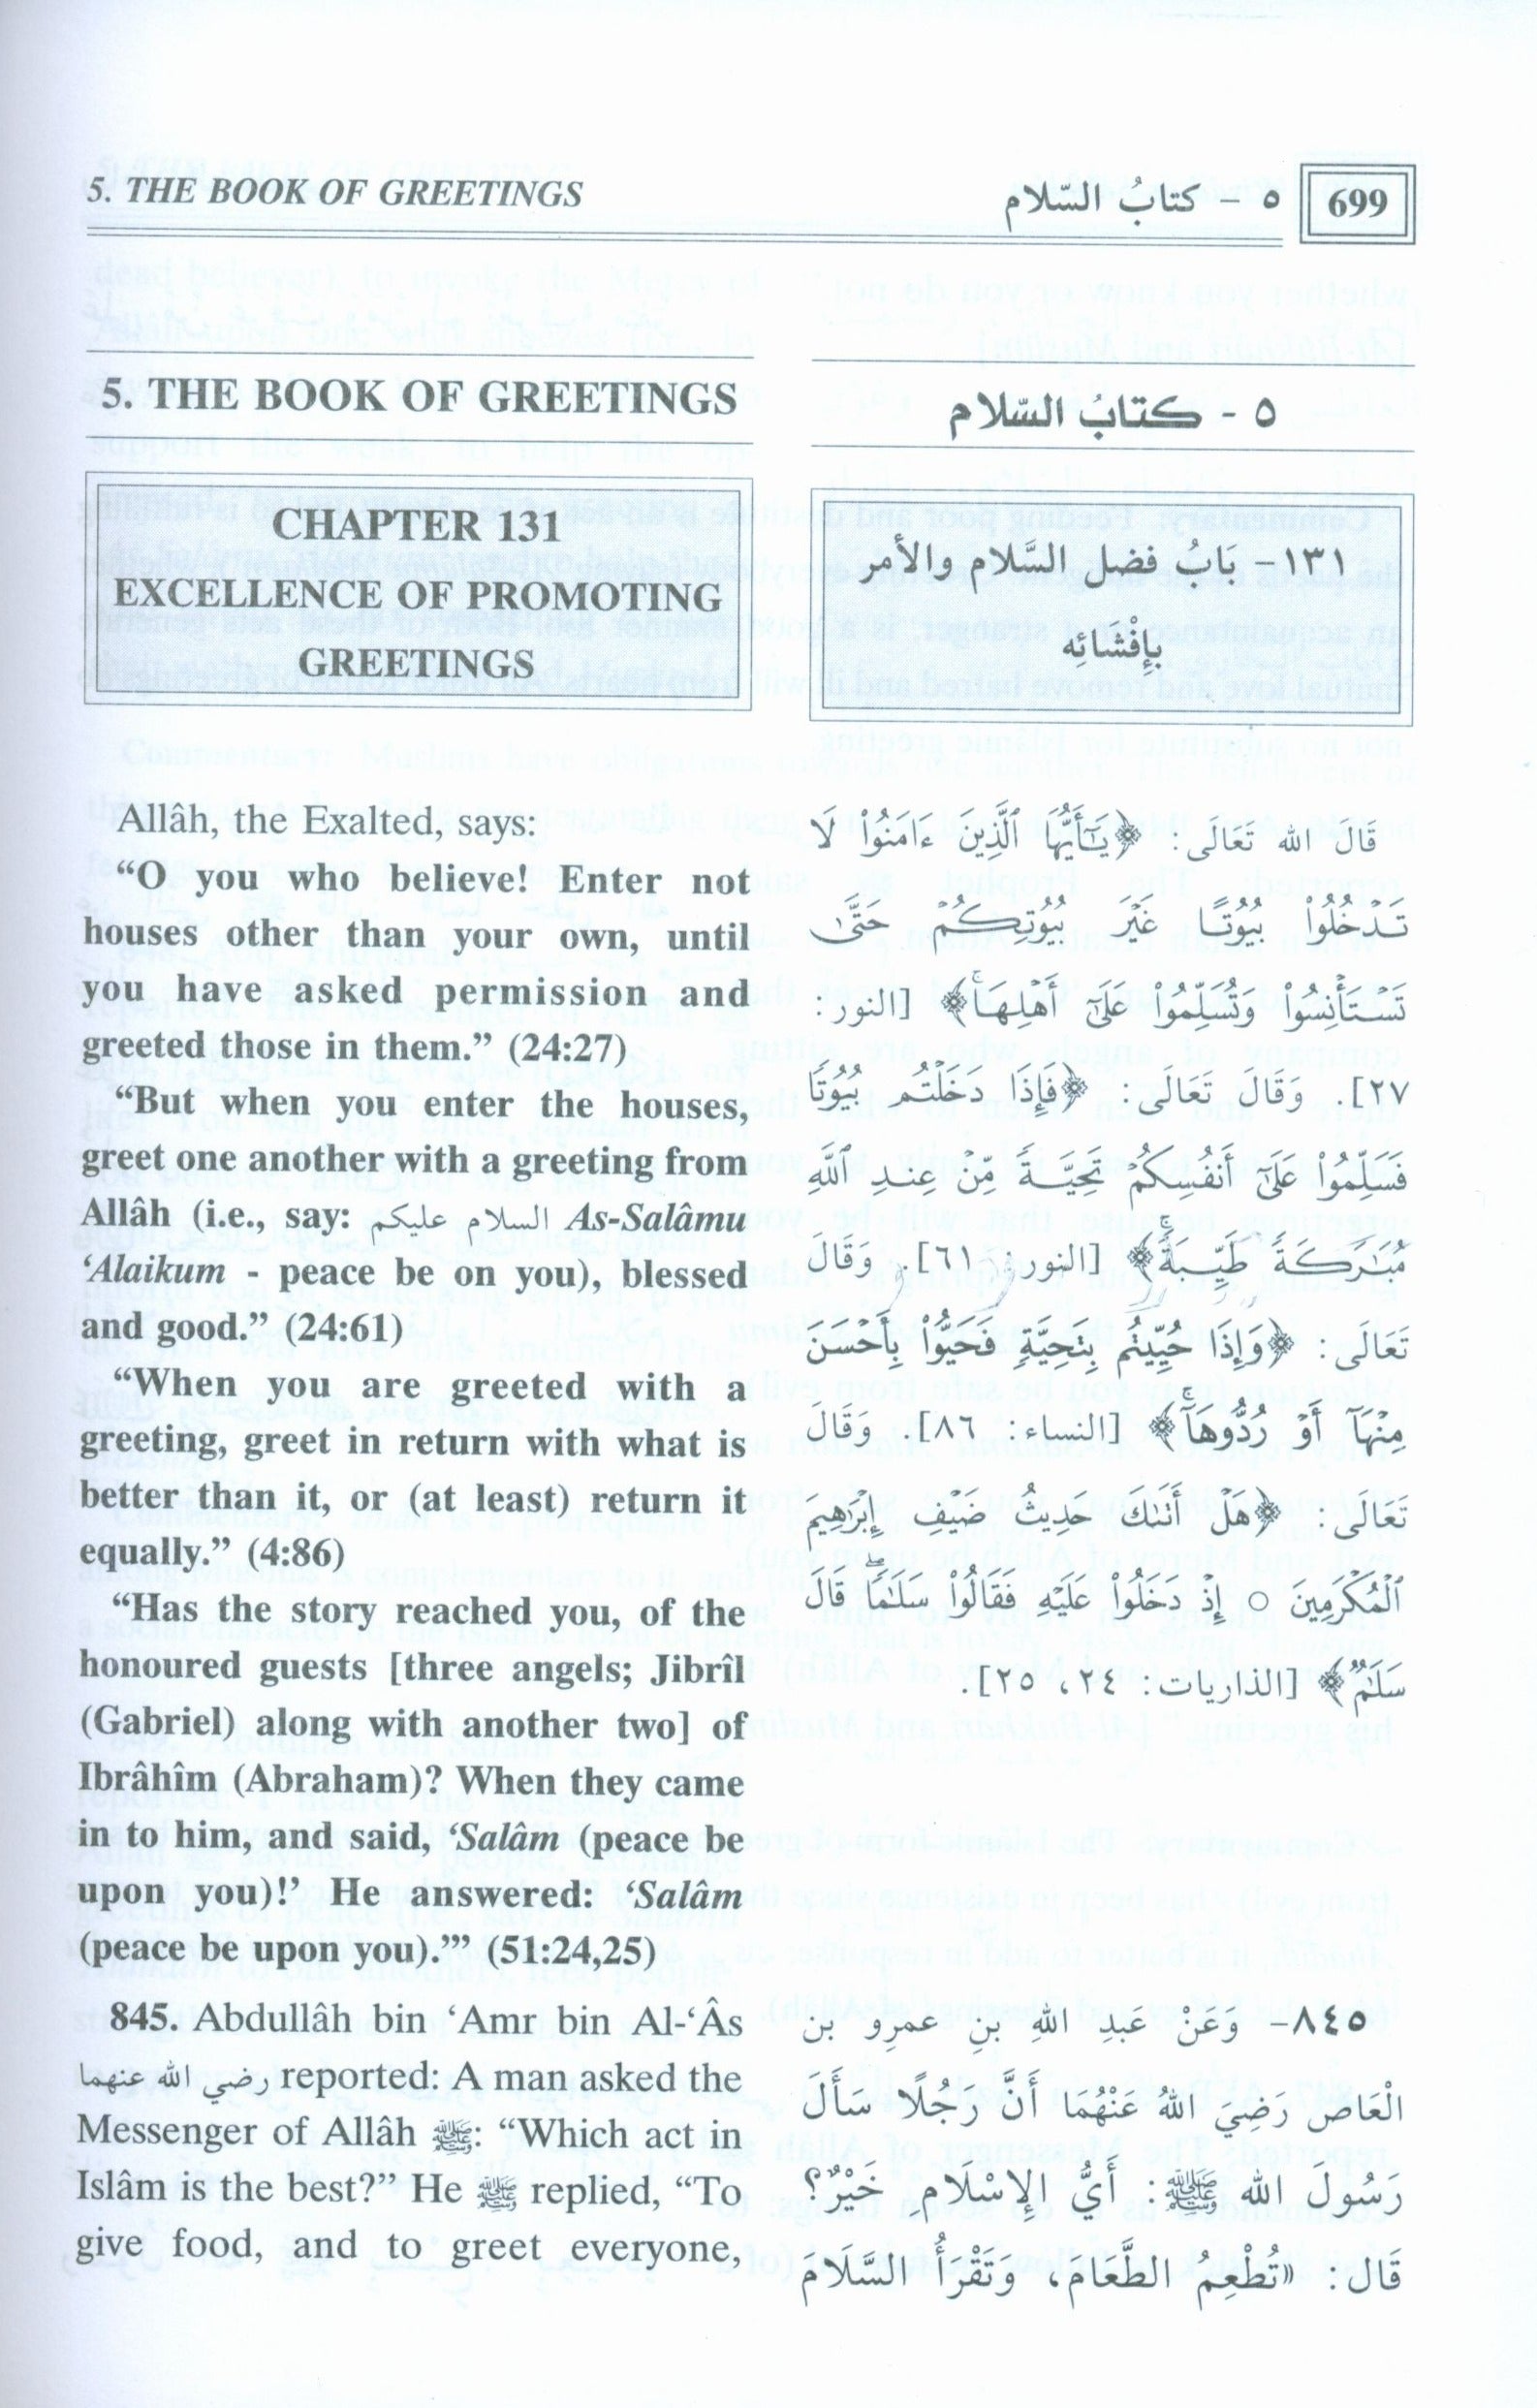 5. THE BOOK OF GREETINGS
٥ - كتابُ السّلام
699
5. THE BOOK OF GREETINGS
٥ - كتابُ السّلام
CHAPTER 131
EXCELLENCE OF PROMOTING
GREETINGS
١٣١- بَابُ فضل السَّلام والأمر
بإفْشَائِه
Allâh, the Exalted, says:
“O you who believe! Enter not
houses other than your own, until
you have asked permission and
greeted those in them.” (24:27)
“But when you enter the houses,
greet one another with a greeting from
Allâh (i.e., say: السلام عليكم As-Salâmu
‘Alaikum - peace be on you), blessed
and good.” (24:61)
“When you are greeted with a
greeting, greet in return with what is
better than it, or (at least) return it
equally.” (4:86)
“Has the story reached you, of the
honoured guests [three angels; Jibrîl
(Gabriel) along with another two] of
Ibrâhîm (Abraham)? When they came
in to him, and said, ‘Salâm (peace be
upon you)!’ He answered: ‘Salâm
(peace be upon you).’” (51:24,25)
845. Abdullâh bin ‘Amr bin Al-‘Âs
رضي الله عنهما reported: A man asked the
Messenger of Allâh ﷺ: “Which act in
Islâm is the best?” He ﷺ replied, “To
give food, and to greet everyone,
قَالَ الله تَعَالَى: ﴿يَٰٓأَيُّهَا ٱلَّذِينَ ءَامَنُوا۟ لَا
تَدْخُلُوا۟ بُيُوتًا غَيْرَ بُيُوتِكُمْ حَتَّىٰ
تَسْتَأْنِسُوا۟ وَتُسَلِّمُوا۟ عَلَىٰٓ أَهْلِهَاۚ﴾ [النور:
٢٧]. وَقَالَ تَعَالَى: ﴿فَإِذَا دَخَلْتُم بُيُوتًا
فَسَلِّمُوا۟ عَلَىٰٓ أَنفُسِكُمْ تَحِيَّةً مِّنْ عِندِ ٱللَّهِ
مُبَٰرَكَةً طَيِّبَةًۚ﴾ [النور: ٦١]. وَقَالَ
تَعَالَى: ﴿وَإِذَا حُيِّيتُم بِتَحِيَّةٍ فَحَيُّوا۟ بِأَحْسَنَ
مِنْهَآ أَوْ رُدُّوهَآۚ﴾ [النساء: ٨٦]. وَقَالَ
تَعَالَى: ﴿هَلْ أَتَىٰكَ حَدِيثُ ضَيْفِ إِبْرَٰهِيمَ
ٱلْمُكْرَمِينَ ○ إِذْ دَخَلُوا۟ عَلَيْهِ فَقَالُوا۟ سَلَٰمًاۖ قَالَ
سَلَٰمٌ﴾ [الذاريات: ٢٤، ٢٥].
٨٤٥- وَعَنْ عَبدِ اللهِ بنِ عمرِو بن
الْعَاصِ رَضِيَ اللهُ عَنْهُمَا أَنَّ رَجُلًا سَأَلَ
رَسُولَ الله ﷺ: أَيُّ الإِسْلَامِ خَيْرٌ؟
قَال: «تُطْعِمُ الطَّعَامَ، وَتَقْرَأُ السَّلَامَ